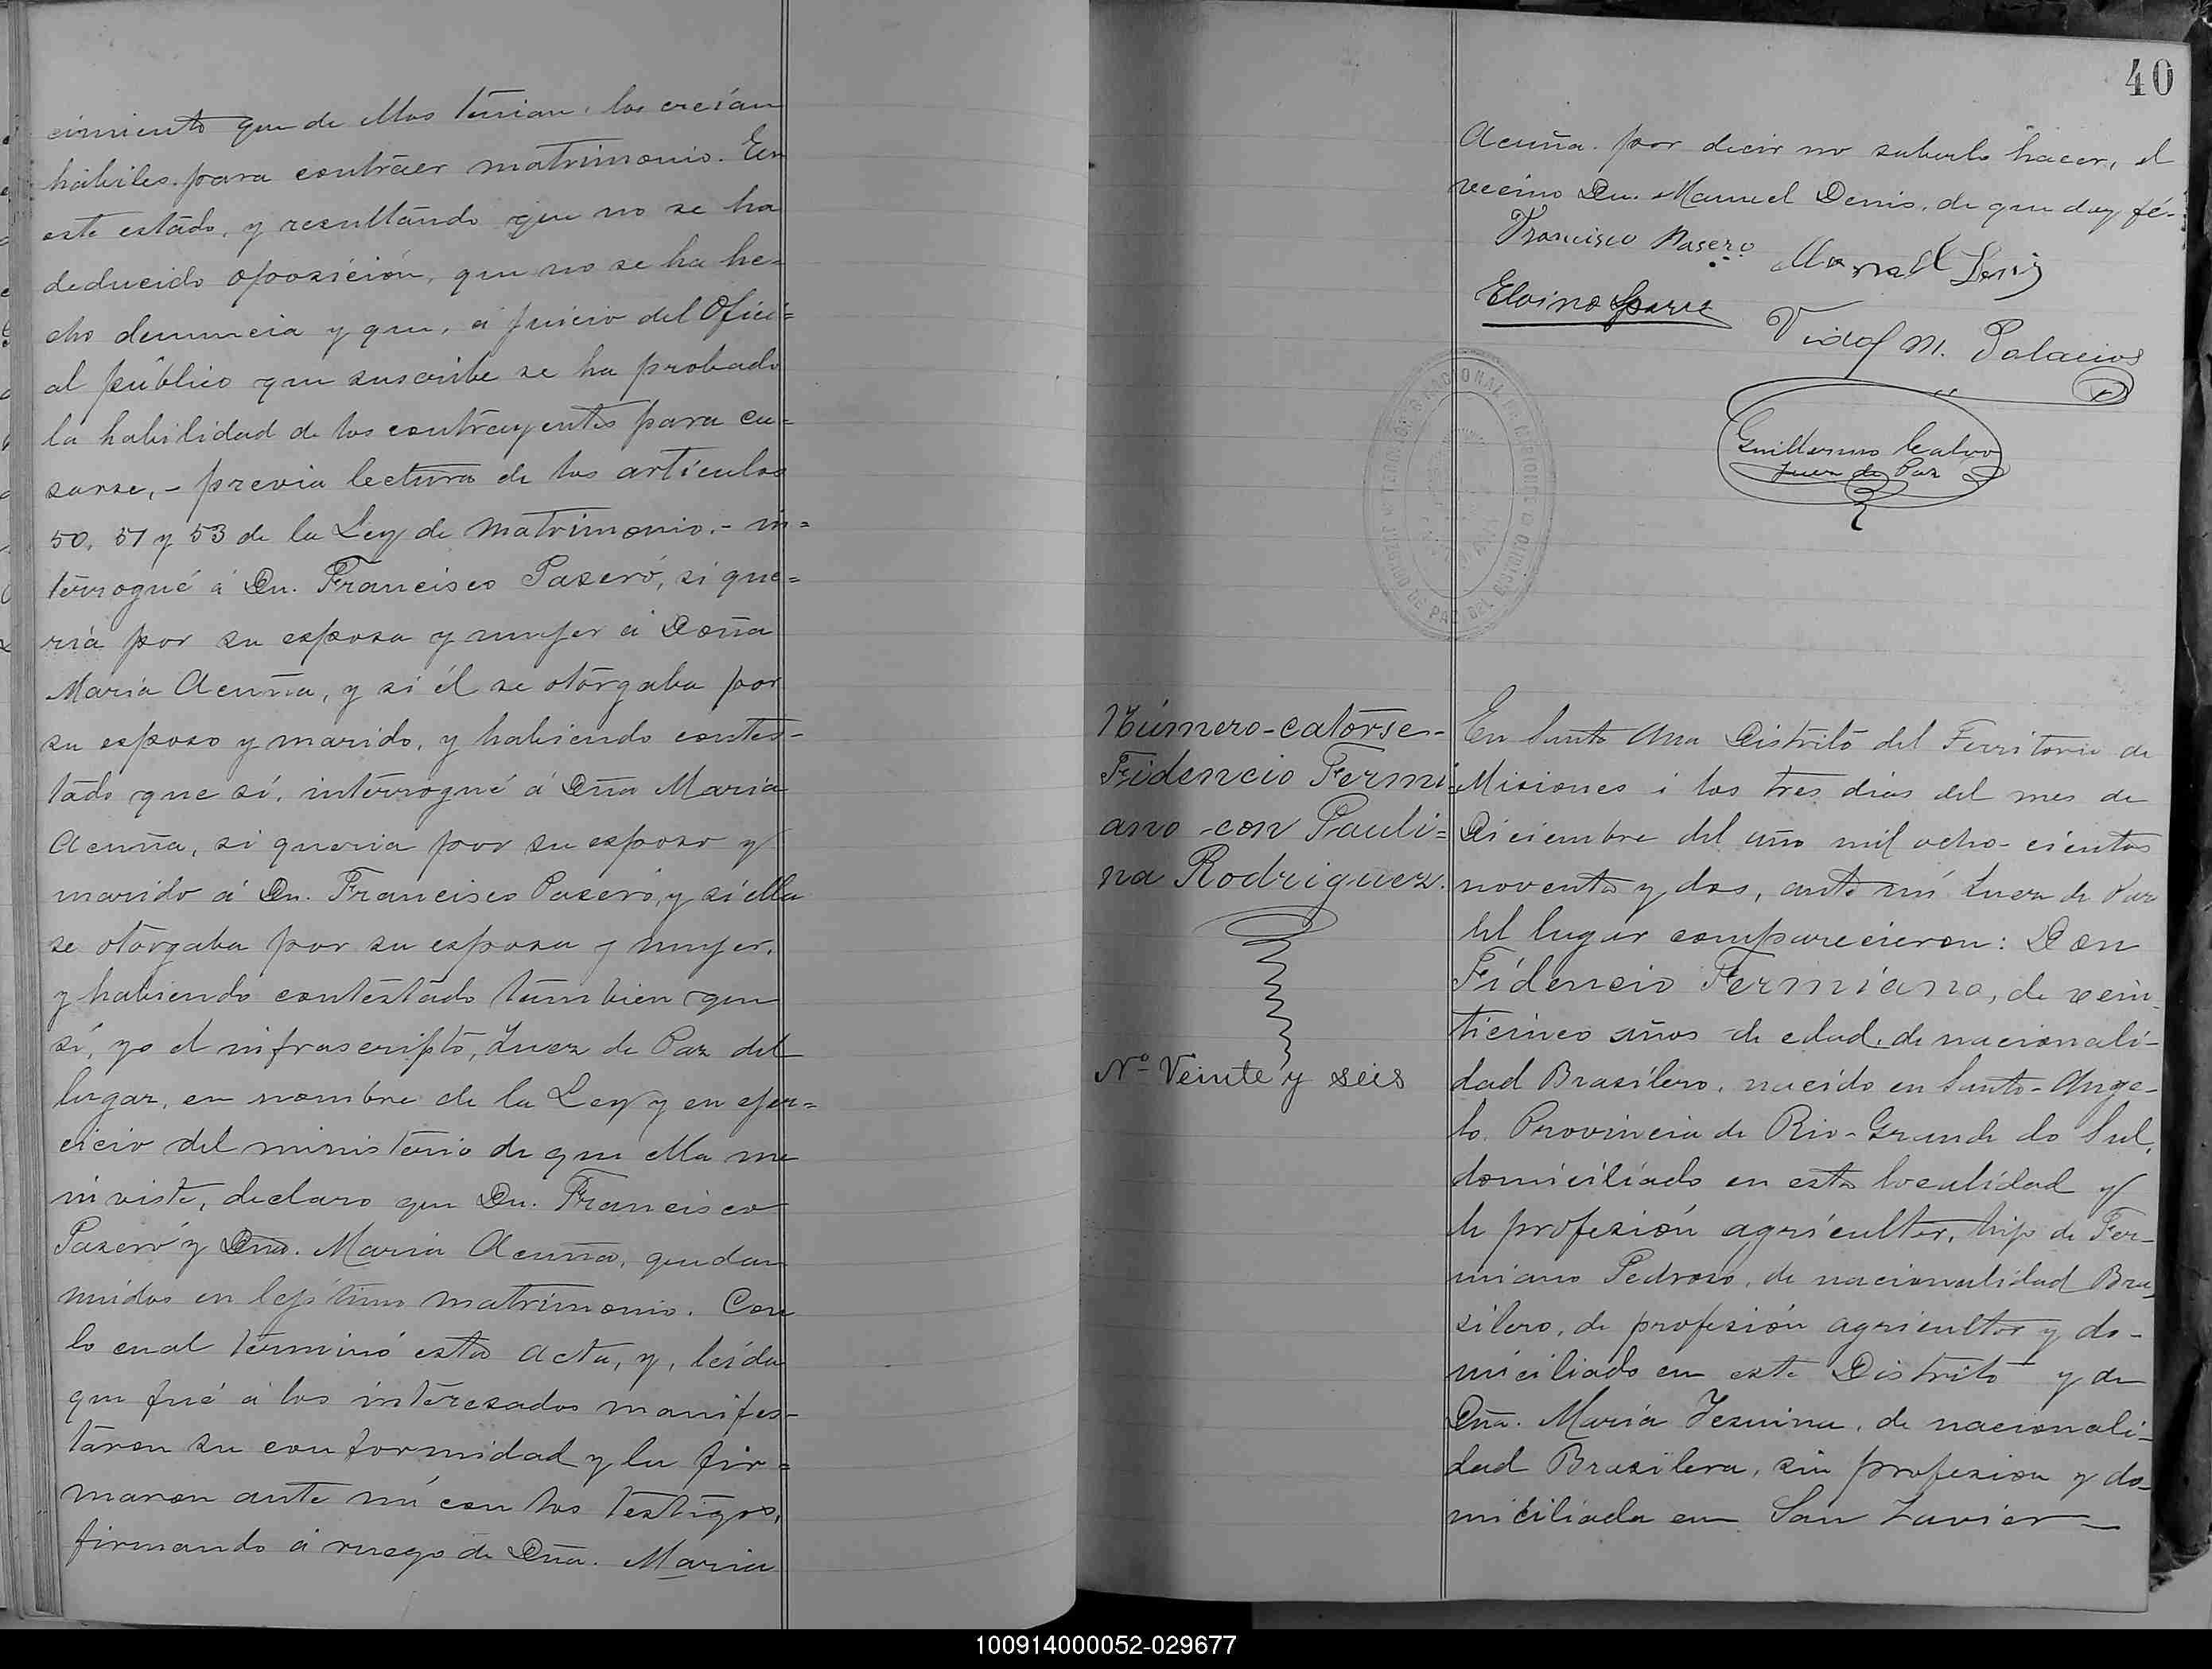 cimiento que de ellos tenian, los creían
hábiles para contraer matrimonio. En
este estado, y resultando que no se ha
deducido oposición, que no se ha he=
cho denuncia y que, á juicio del Ofici=
al público que suscribe se ha probado
la habilidad de los contrayentes para ca=
sarse, - previa lectura de los artículos
50, 51 y 53 de la Ley de Matrimonio, - in=
terrogué á Dn. Francisco Paseró, si que=
ría por su esposa y mujer á Doña
María Acuña, y si él se otorgaba por
su esposo y marido, y habiendo contes-
tado que sí, interrogué á Dña María
Acuña, si queria por su esposo y
marido á Dn. Francisco Paseró, y si ella
se otorgaba por su esposa y mujer,
y habiendo contestado tambien que
sí, yo el infrascripto, Juez de Paz del
lugar, en nombre de la Ley y en ejer=
cicio del ministerio de que ella me
inviste, declaro que Dn. Francisco
Paseró y Dña. María Acuña, quedan
unidos en lejítimo matrimonio. Con
lo cual terminó esta acta, y, leída
que fué á los interesados manifes-
taron su conformidad y la fir=
maron ante mí con los testigos,
firmando á ruego de Dña. Maria
40
Acuña por decir no saberlo hacer, el
vecino Dn. Manuel Denis, de que doy fé.
Francisco Pasero
Elvino
Vidal M. Palacios
Guillermo Calvo
Juez de Paz
JUZGADO DE PAZ DEL
Número-catorse-
Fidencio Fermi=
ano con Pauli=
na Rodriguez.
Nº Veinte y seis
En Santa Ana Distrito del Territorio de
Misiones á los tres dias del mes de
Diciembre del año mil ocho-cientos
noventa y dos, ante mí Juez de Paz
del lugar comparecieron: Don
Fidencio Fermiano, de vein-
ticinco años de edad, de nacionali-
dad Brasilero, nacido en Santo-Ange-
lo, Provincia de Rio-Grande do Sul,
domiciliado en esta localidad y
de profesión agricultor, hijo de Fer-
miano Pedroso, de nacionalidad Bra-
silero, de profesión agricultor y do-
miciliado en este Distrito y de
Dña. María Jesuina, de nacionali-
dad Brasilera, sin profesion y do-
miciliada en San Javier-
100914000052-029677